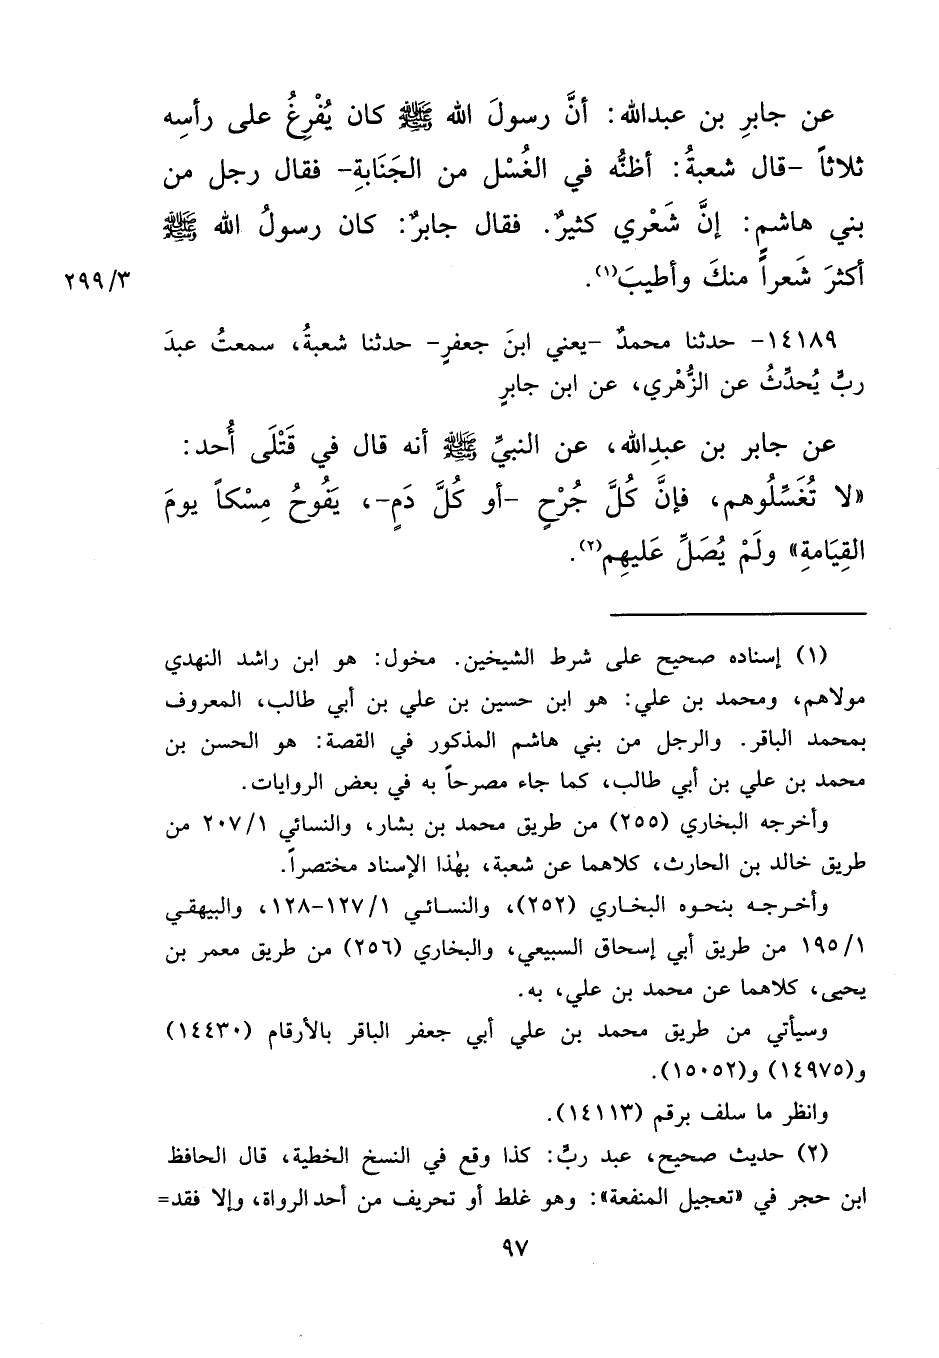 عن جابرِ بن عبدالله: أنَّ رسولَ الله ﷺ كان يُفْرِغُ على رأسِه
ثلاثاً -قال شعبةُ: أظنُّه في الغُسْل من الجَنَابةِ- فقال رجل من
بني هاشمٍ: إنَّ شَعْري كثيرٌ. فقال جابرٌ: كان رسولُ الله ﷺ
أكثرَ شَعراً منكَ وأطيبَ(١).
٢٩٩/٣
١٤١٨٩- حدثنا محمدٌ -يعني ابنَ جعفرٍ- حدثنا شعبةُ، سمعتُ عبدَ
ربٍّ يُحدِّثُ عن الزُّهْري، عن ابن جابرٍ
عن جابر بن عبدِالله، عن النبيِّ ﷺ أنه قال في قَتْلَى أُحد:
«لا تُغَسِّلُوهم، فإنَّ كُلَّ جُرْحٍ -أو كُلَّ دَمٍ-، يَفُوحُ مِسْكاً يومَ
القِيَامةِ» ولَمْ يُصَلِّ عَليهِم(٢).
(١) إسناده صحيح على شرط الشيخين. مخول: هو ابن راشد النهدي
مولاهم، ومحمد بن علي: هو ابن حسين بن علي بن أبي طالب، المعروف
بمحمد الباقر. والرجل من بني هاشم المذكور في القصة: هو الحسن بن
محمد بن علي بن أبي طالب، كما جاء مصرحاً به في بعض الروايات.
وأخرجه البخاري (٢٥٥) من طريق محمد بن بشار، والنسائي ٢٠٧/١ من
طريق خالد بن الحارث، كلاهما عن شعبة، بهٰذا الإسناد مختصراً.
وأخرجه بنحوه البخاري (٢٥٢)، والنسائي ١٢٧/١-١٢٨، والبيهقي
١٩٥/١ من طريق أبي إسحاق السبيعي، والبخاري (٢٥٦) من طريق معمر بن
يحيى، كلاهما عن محمد بن علي، به.
وسيأتي من طريق محمد بن علي أبي جعفر الباقر بالأرقام (١٤٤٣٠)
و(١٤٩٧٥) و(١٥٠٥٢).
وانظر ما سلف برقم (١٤١١٣).
(٢) حديث صحيح، عبد ربٍّ: كذا وقع في النسخ الخطية، قال الحافظ
ابن حجر في «تعجيل المنفعة»: وهو غلط أو تحريف من أحد الرواة، وإلا فقد=
٩٧